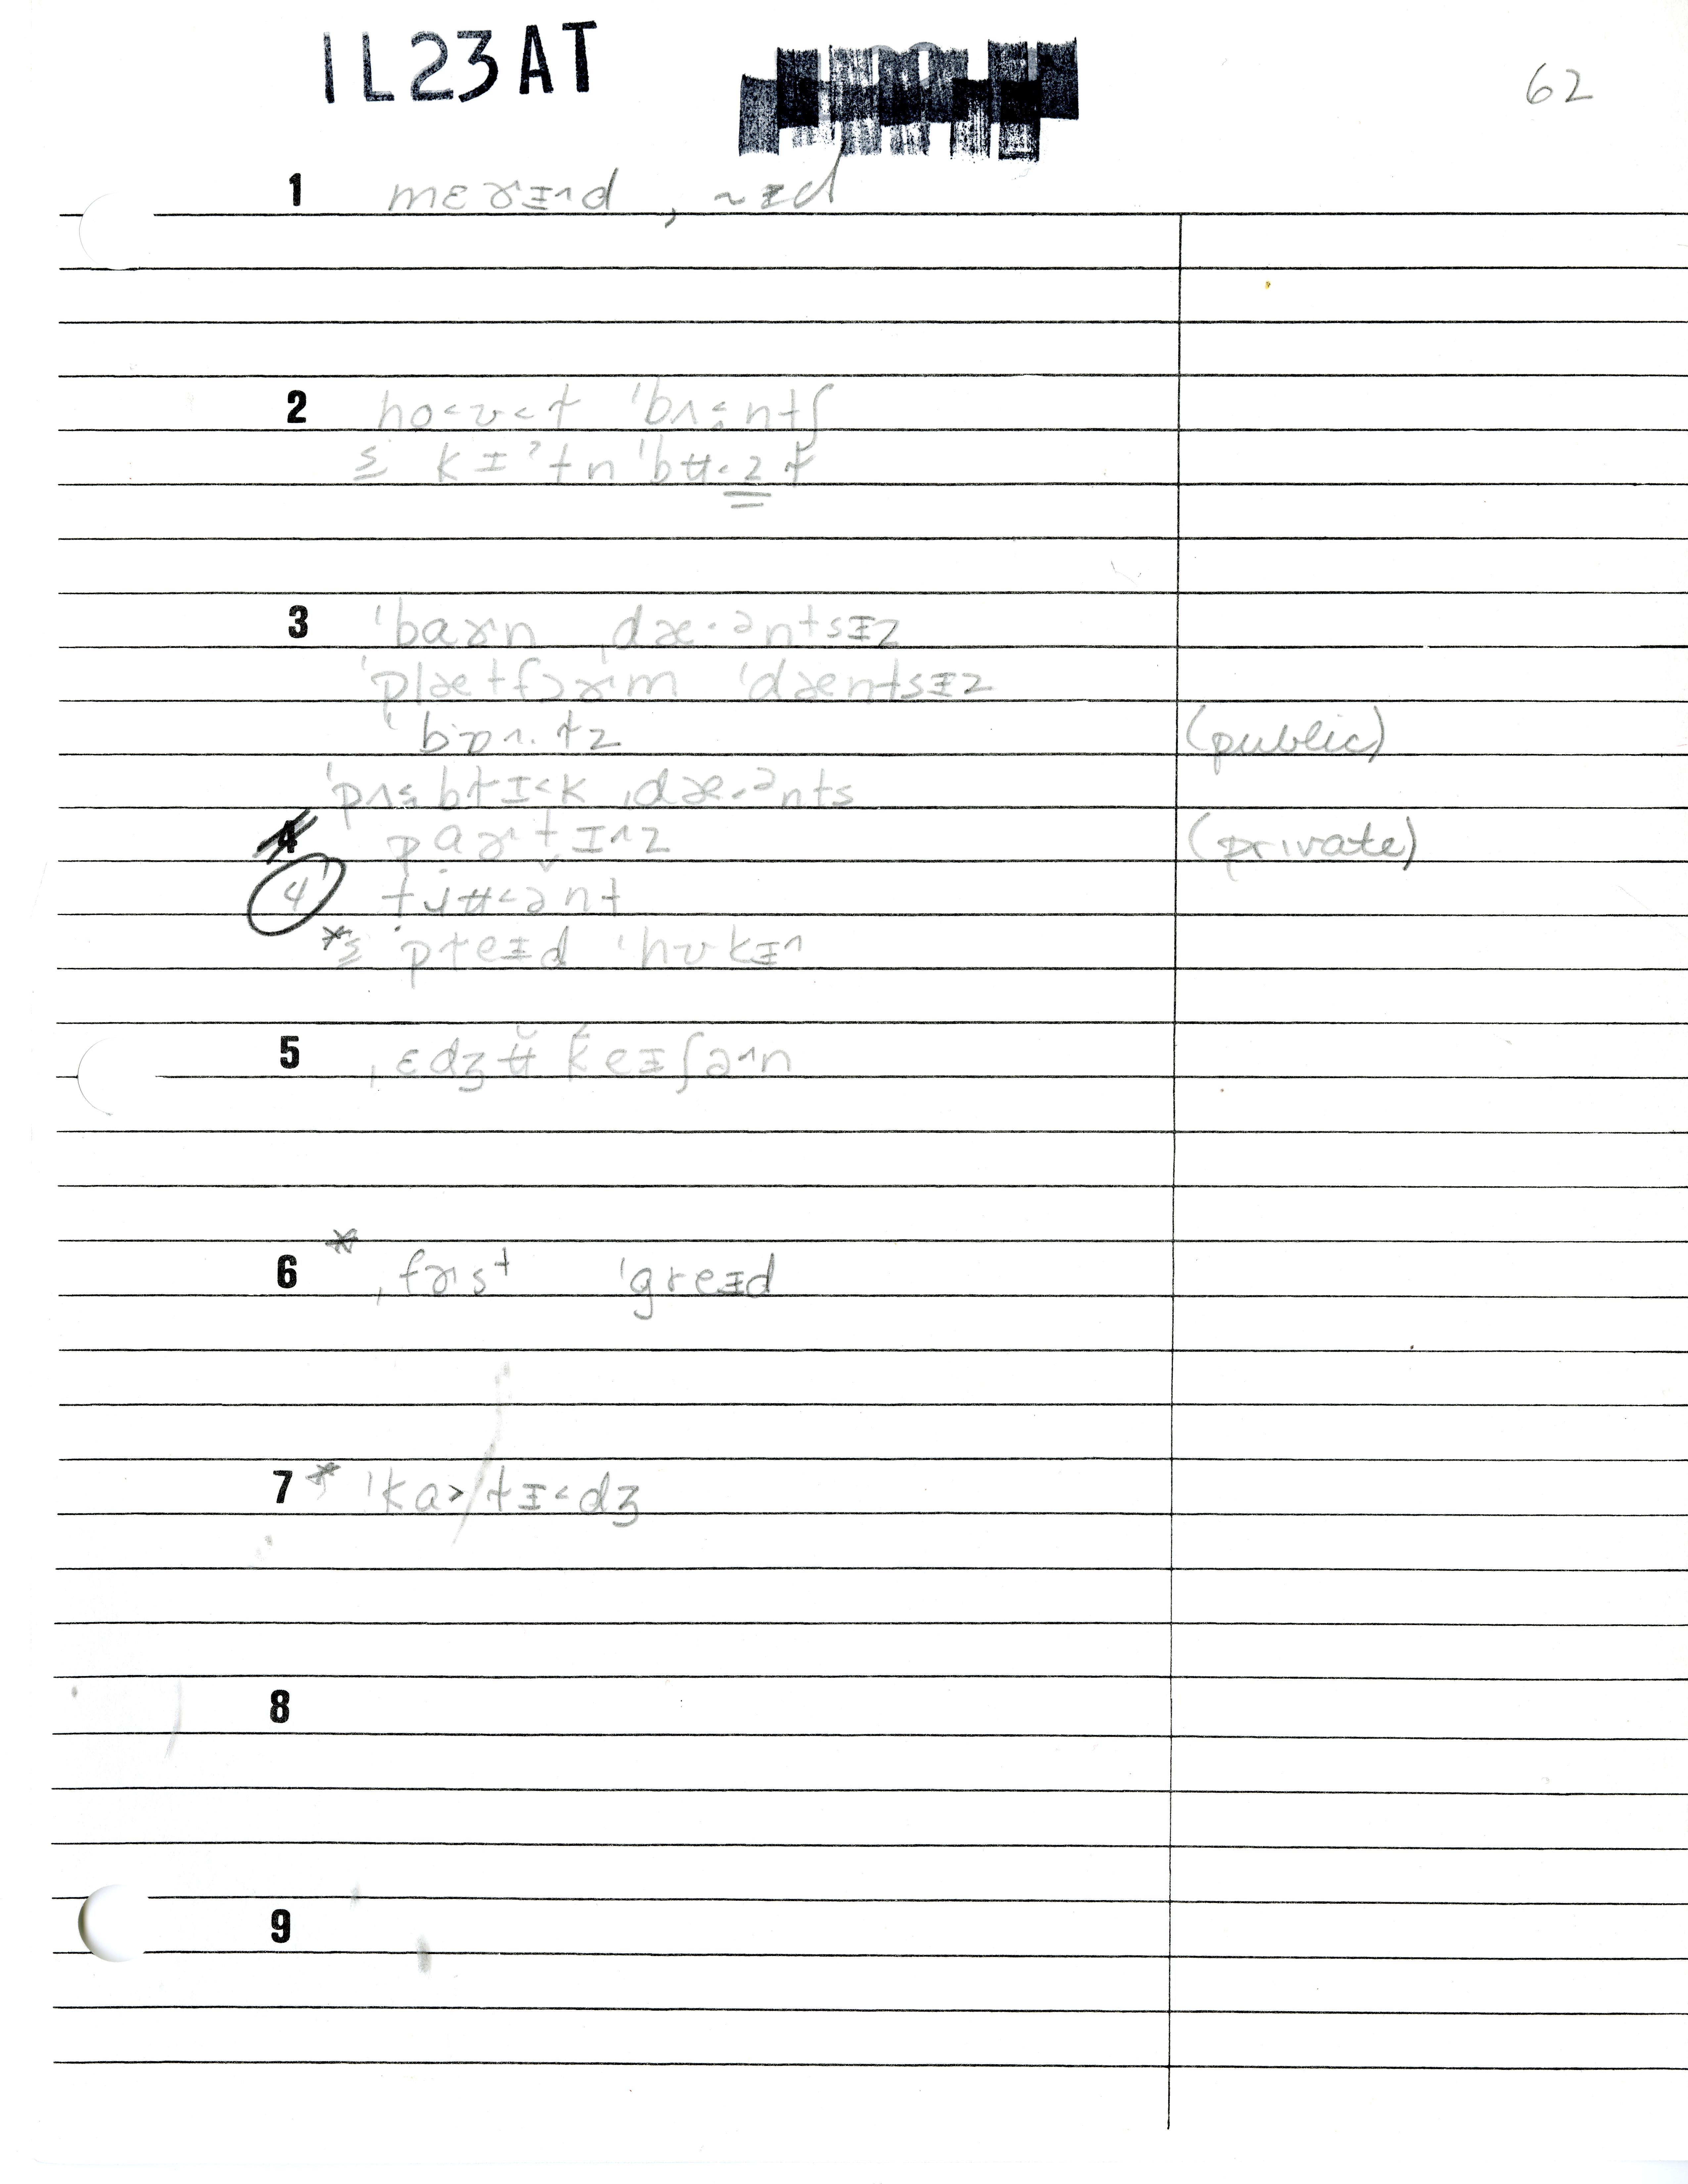 IL23AT
62
1 mɛɚɪ˄d , ~ɪd
2 ho˂ʊ˂ɫ ˈbʌ˔ntʃ
s̳ kɪˀtn ˈbʉ·z̳ɫ
3 ˈbaɚn ˌdæ·ᵊntsɪz
ˈplætfɔɚm ˈdæntsɪz
ˈbɒ˄·ɫz (public)
ˈpʌbɫɪ˂k ˌdæ·ᵊnts
4 paɚt̬ɪ˄z (private)
4 tjʉ˂ənt
*s̳ ˈpɫeɪd ˈhʊkɪ˄
5 ˌɛdʒʉ̆ˈkeɪʃə˄n
6 * ˌfɚst ˈgreɪd
7 * ˈka˃ɫɪ˂dʒ
8
9